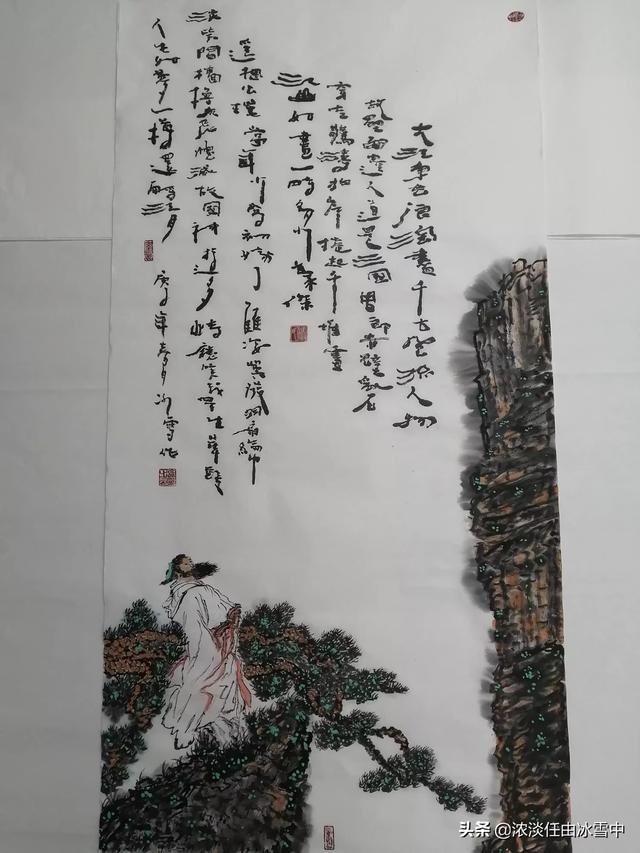 大江東去浪淘盡千古風流人物
故壘西邊人道是三國周郎赤壁亂石
穿空驚濤拍岸捲起千堆雪
江山如畫一時多少豪傑
遙想公瑾當年小喬初嫁了雄姿英發羽扇綸巾
談笑間檣櫓灰飛煙滅故國神遊多情應笑我早生華髮
人生如夢一樽還酹江月
庚子年春月冰雪作
头条 @浓淡任由冰雪中